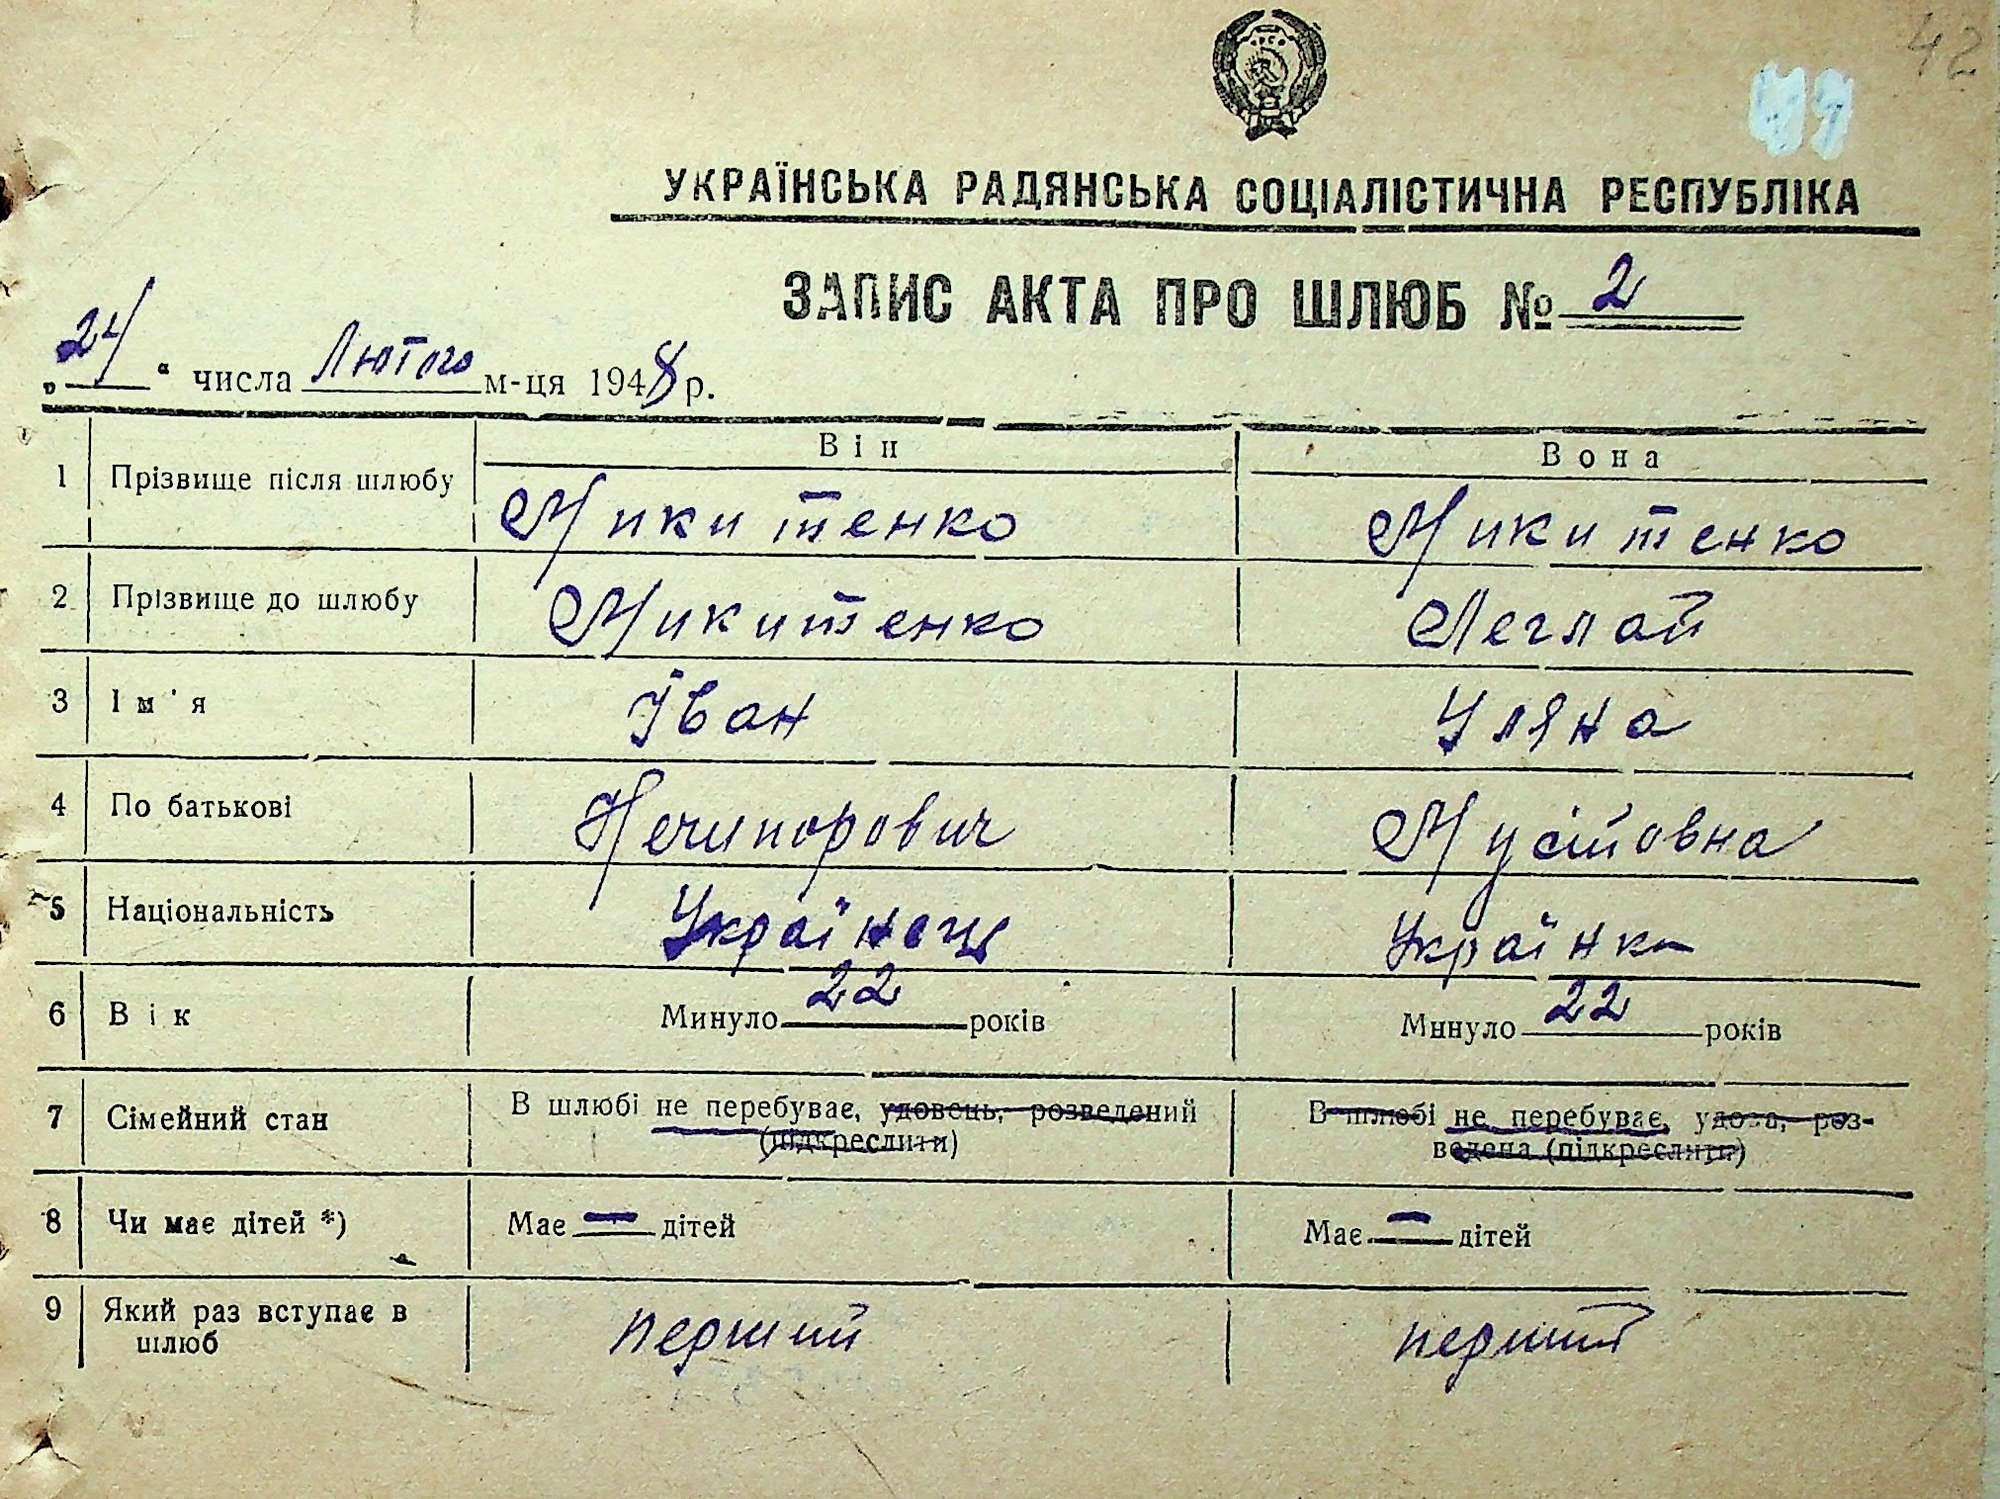 42
УКРАЇНСЬКА РАДЯНСЬКА СОЦІАЛІСТИЧНА РЕСПУБЛІКА
ЗАПИС АКТА ПРО ШЛЮБ № 2
„24“ числа Лютого м-ця 1948 р.
Він Вона
1 Прізвище після шлюбу Микитенко Микитенко
2 Прізвище до шлюбу Микитенко Леглай
3 Ім'я Іван Уляна
4 По батькові Нечипорович Мусітовна
5 Національність Українець Українка
6 Вік Минуло 22 років Минуло 22 років
7 Сімейний стан В шлюбі не перебуває, удовець, розведений В шлюбі не перебуває, удова, роз-
(підкреслити) ведена (підкреслити)
8 Чи має дітей *) Має — дітей Має — дітей
9 Який раз вступає в перший перший
шлюб